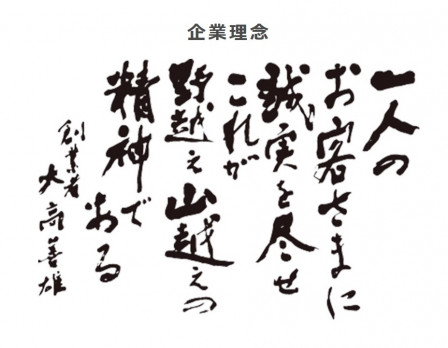 企業理念
一人の
お客さまに
誠実を尽せ
これが
野越え山越えの
精神で
ある
創業者
大高善雄